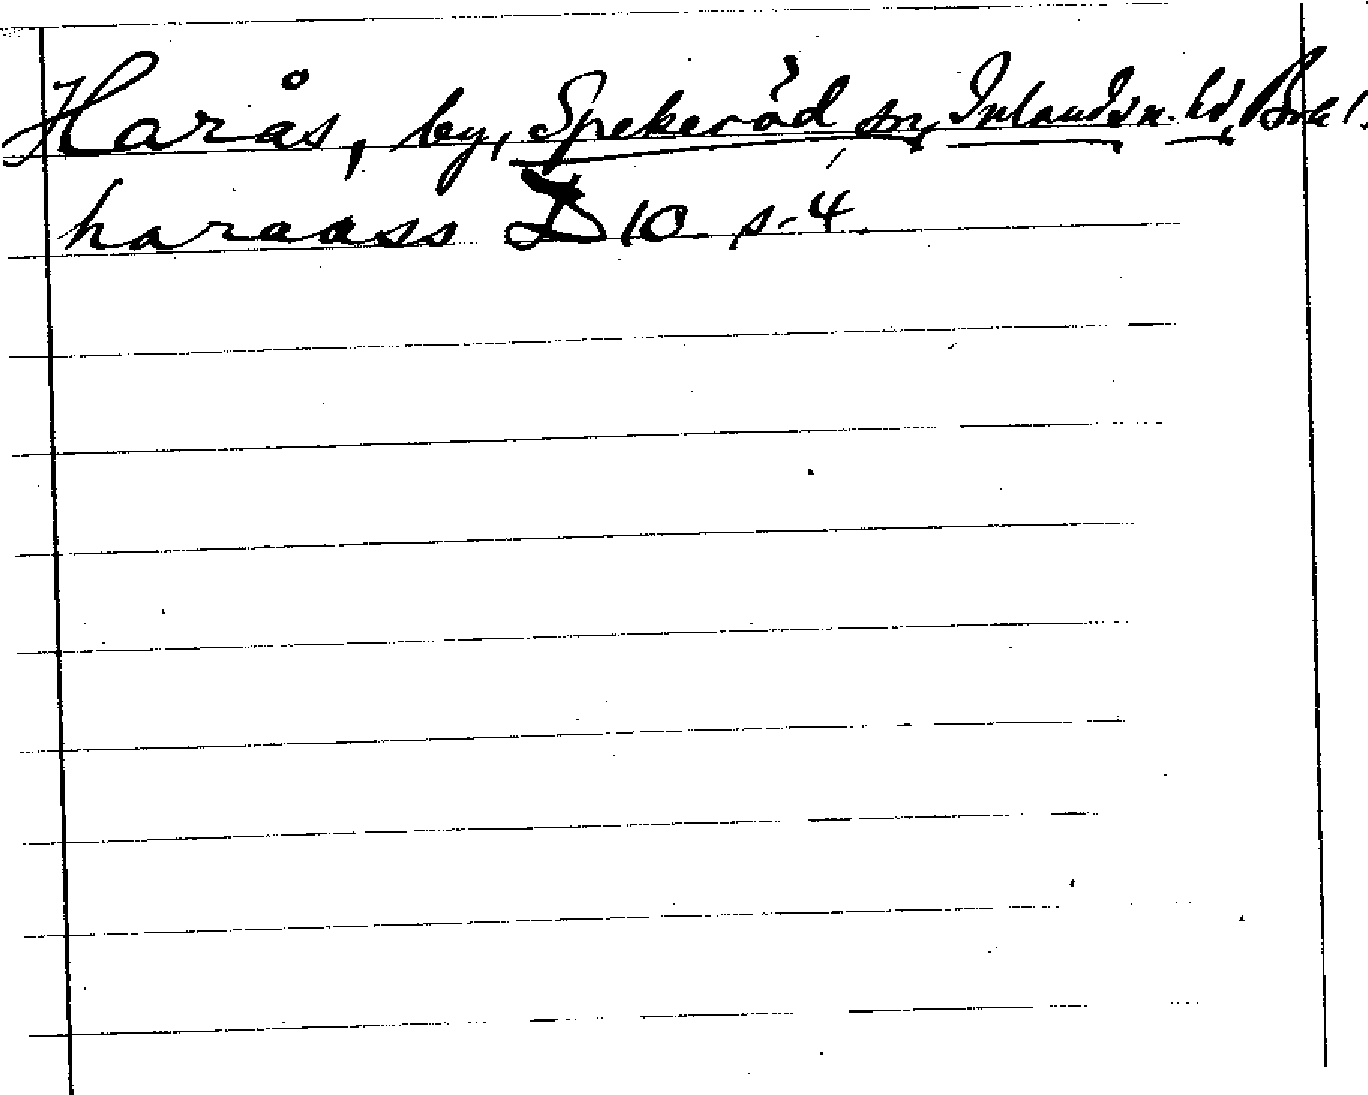 Harås, by, Spekeröd sn, Inlands n. hd, Boh l.
haraass D 10 s. 4.